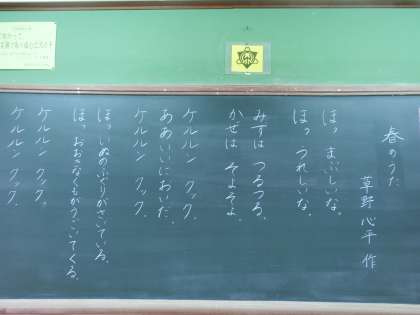 春のうた
草野心平 作
ほっ まぶしいな。
ほっ うれしいな。
みずは つるつる。
かぜは そよそよ。
ケルルン クック。
ああいいにおいだ。
ケルルン クック。
ほっ いぬのふぐりがさいている。
ほっ おおきなくもがうごいてくる。
ケルルン クック。
ケルルン クック。